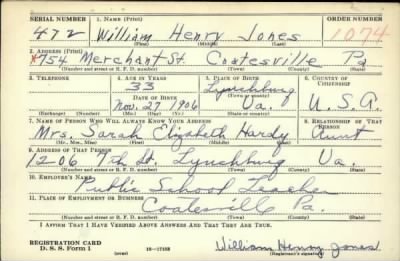 SERIAL NUMBER 1. NAME (Print) ORDER NUMBER
472 William Henry Jones 1074
(First) (Middle) (Last)
2. ADDRESS (Print)
*754 Merchant St. Coatesville Pa
(Number and street or R. F. D. number) (Town) (County) (State)
3. TELEPHONE 4. AGE IN YEARS 5. PLACE OF BIRTH 6. COUNTRY OF CITIZENSHIP
33 Lynchburg
DATE OF BIRTH (Town or county)
Nov. 27 1906 Va. U.S.A.
(Exchange) (Number) (Mo.) (Day) (Yr.) (State or country)
7. NAME OF PERSON WHO WILL ALWAYS KNOW YOUR ADDRESS 8. RELATIONSHIP OF THAT PERSON
Mrs. Sarah Elizabeth Hardy Aunt
(Mr., Mrs., Miss) (First) (Middle) (Last)
9. ADDRESS OF THAT PERSON
1206 7th St. Lynchburg Va.
(Number and street or R. F. D. number) (Town) (County) (State)
10. EMPLOYER'S NAME
Public School Teacher
11. PLACE OF EMPLOYMENT OR BUSINESS
Coatesville Pa.
(Number and street or R. F. D. number) (Town) (County) (State)
I AFFIRM THAT I HAVE VERIFIED ABOVE ANSWERS AND THAT THEY ARE TRUE.
REGISTRATION CARD
D. S. S. Form 1 (over) 16—17105 William Henry Jones
(Registrant's signature)